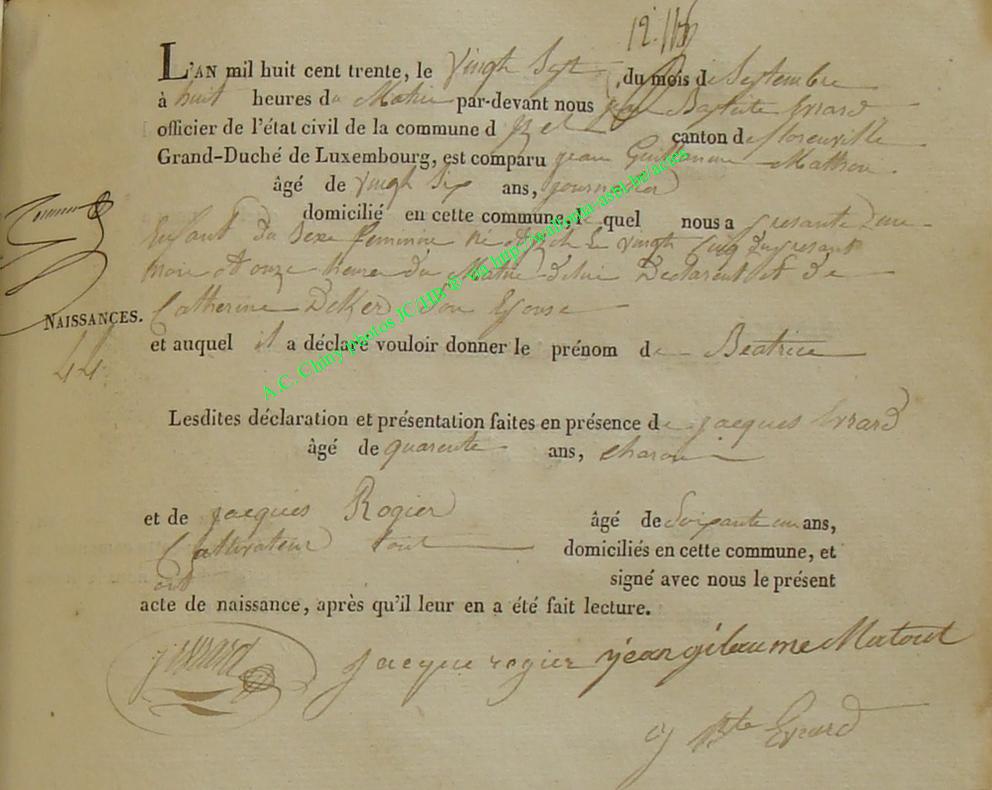 L'AN mil huit cent trente, le Vingh Sept du mois d Septembre
à huit heures du Matin par-devant nous Baptiste Evrard
officier de l'état civil de la commune d'Izel canton de florenville
Grand-Duché de Luxembourg, est comparu jean Guillaume Mathou
âgé de vingh Six ans, journalier
domicilié en cette commune, lequel nous a presanté une
Enfant du Sexe feminin né le vingh Cinq du presant
mois a onze heure du Matin de lui Declarent et de
Catherine DeKer Son Epouse
NAISSANCES.
44
et auquel il a déclaré vouloir donner le prénom de Béatrice
Lesdites déclaration et présentation faites en présence de jacques Evrard
âgé de quarente ans, charon
et de jacques Rogier âgé de Soixante un ans,
Cultivateur tout domiciliés en cette commune, et
ont signé avec nous le présent
acte de naissance, après qu'il leur en a été fait lecture.
j evrard jacque rogier jean gilaume Matout
j Bte Evrard
A.C. Chiny photos JC/HB © via http://wallonia-asbl.be/actes